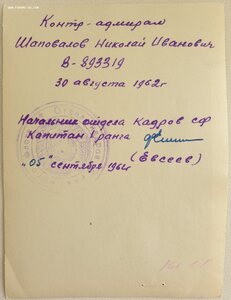 Контр-адмирал
Шаповалов Николай Иванович
В-893319
30 августа 1962г
Начальник отдела кадров СФ
Капитан I ранга
(Евсеев)
"05" сентября 1962г